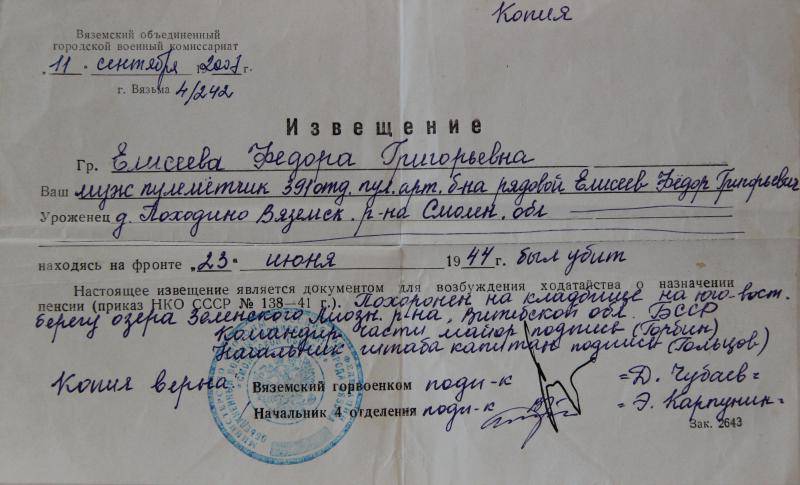 Копия
Вяземский объединенный
городской военный комиссариат
„11" сентября 2007 г.
г. Вязьма 4/242
Извещение
Гр. Елисеева Федора Григорьевна
Ваш муж пулемётчик 391 отд. пул. арт. б-на рядовой Елисеев Фёдор Григорьевич
Уроженец д. Походино Вяземск. р-на Смолен. обл
находясь на фронте „23" июня 1944 г. был убит
Настоящее извещение является документом для возбуждения ходатайства о назначении
пенсии (приказ НКО СССР № 138—41 г.). Похоронен на кладбище на юго-вост.
берегу озера Зеленского Лиозн. р-на, Витебской обл. БССР
Командир части майор подпись (Горбин)
Начальник штаба капитан подпись (Гольцов)
Копия верна: Вяземский горвоенком подп-к =Д. Чубаев=
Начальник 4 отделения подп-к =Э. Карпунин=
Зак. 2643